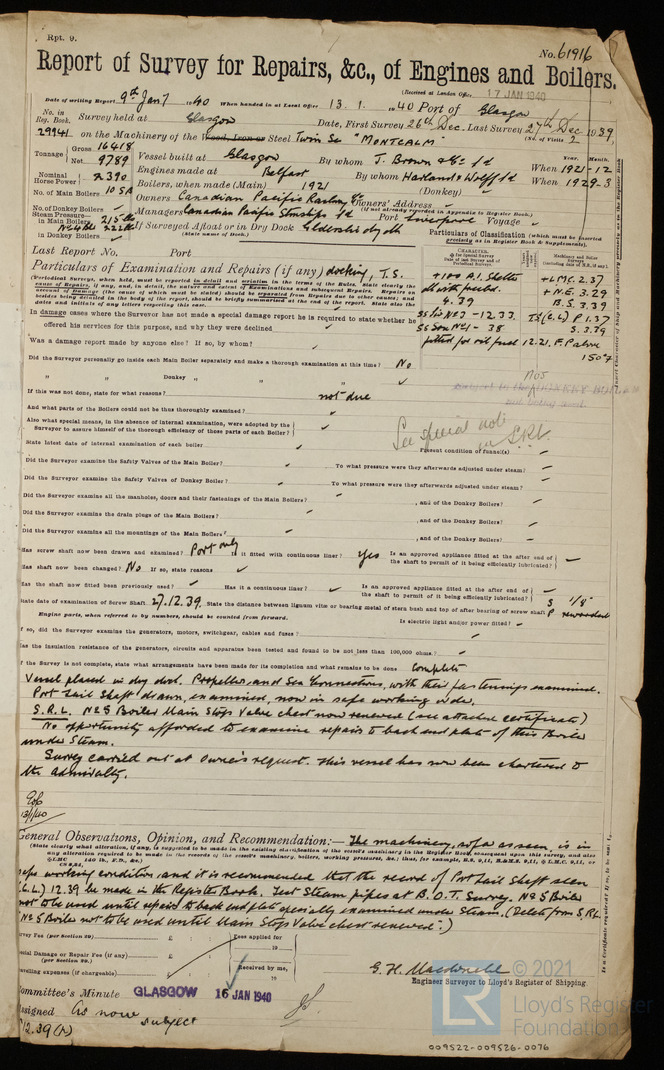 Rpt. 9.
No. 61916
Report of Survey for Repairs, &c., of Engines and Boilers.
(Received at London Office 17 JAN 1940
Date of writing Report 9th Jany 1940 When handed in at Local Office 13. 1. 1940 Port of Glasgow
No. in Reg. Book. Survey held at Glasgow Date, First Survey 26th Dec. Last Survey 27th Dec 1939
(No. of Visits 2
29941 on the Machinery of the Wood, Iron or Steel Twin Sc "MONTCALM"
Tonnage Gross 16418
Net 9789
Vessel built at Glasgow By whom J. Brown & Co Ld When 1921-12
Year. Month.
Nominal Horse Power 2390
Engines made at Belfast By whom Harland & Wolff Ld When 1929-3
No. of Main Boilers 10 SB
Boilers, when made (Main) 1921 (Donkey)
No. of Donkey Boilers
Owners Canadian Pacific Railway Co Owners' Address
(If not already recorded in Appendix to Register Book.)
Steam Pressure— in Main Boilers 215 lb
in Donkey Boilers
Managers Canadian Pacific Steamships Ld Port Liverpool Voyage
If Surveyed Afloat or in Dry Dock
(State name of Dock.)
Particulars of Classification (which must be inserted precisely as in Register Book & Supplements).
Last Report No. Port
Particulars of Examination and Repairs (if any) docking, T.S.
+100 A.1. Shelter
dk with freebd.
4.39
SS No 1 - 38
fitted for oil fuel 12.21. F.P. above 150°F
+LMC. 2.37
+N.E. 3.29
B.S. 3.39
In damage cases where the Surveyor has not made a special damage report he is required to state whether he
offered his services for this purpose, and why they were declined
Was a damage report made by anyone else? If so, by whom?
Did the Surveyor personally go inside each Main Boiler separately and make a thorough examination at this time? No
" " Donkey " " "
If this was not done, state for what reasons? not due
And what parts of the Boilers could not be thus thoroughly examined?
Also what special means, in the absence of internal examination, were adopted by the
Surveyor to assure himself of the thorough efficiency of those parts of each Boiler?
See special note
in S.R.L.
State latest date of internal examination of each boiler
Present condition of funnel(s)
Did the Surveyor examine the Safety Valves of the Main Boiler? To what pressure were they afterwards adjusted under steam?
Did the Surveyor examine the Safety Valves of Donkey Boiler? To what pressure were they afterwards adjusted under steam?
Did the Surveyor examine all the manholes, doors and their fastenings of the Main Boilers? , and of the Donkey Boilers?
Did the Surveyor examine the drain plugs of the Main Boilers? , and of the Donkey Boilers?
Did the Surveyor examine all the mountings of the Main Boilers? , and of the Donkey Boilers?
Has screw shaft now been drawn and examined? Port only Is it fitted with continuous liner? Yes Is an approved appliance fitted at the after end of the shaft to permit of it being efficiently lubricated?
Has shaft now been changed? No If so, state reasons
Has the shaft now fitted been previously used? Has it a continuous liner? Is an approved appliance fitted at the after end of the shaft to permit of it being efficiently lubricated?
State date of examination of Screw Shaft 27.12.39. State the distance between lignum vitæ or bearing metal of stern bush and top of after bearing of screw shaft S 1/8" P rewooded
Engine parts, when referred to by numbers, should be counted from forward. Is electric light and/or power fitted?
If so, did the Surveyor examine the generators, motors, switchgear, cables and fuses?
Has the insulation resistance of the generators, circuits and apparatus been tested and found to be not less than 100,000 ohms?
If the Survey is not complete, state what arrangements have been made for its completion and what remains to be done Complete
Vessel placed in dry dock. Propellers and Sea Connections, with their fastenings examined.
Port tail shaft drawn, examined, now in safe working order.
S.R.L. No 5 Boiler Main Stop Valve chest now renewed (see attached certificate)
No opportunity afforded to examine repairs to back end plate of this Boiler
under Steam.
Survey carried out at Owner's request. This vessel has now been chartered to
the Admiralty.
13/1/40
General Observations, Opinion, and Recommendation:— The machinery, so far as seen, is in
(State clearly what alteration, if any, is suggested to be made in the existing classification of the vessel's machinery in the Register Book, consequent upon this survey, and also
any alteration required to be made in the records of the vessel's machinery, boilers, working pressures, &c.; thus, for example,
safe working condition and it is recommended that the record of Port tail shaft seen
(C.L.) 12.39 be made in the Register Book. Test Steam pipes at B.O.T. Survey. No 5 Boiler
not to be used until repairs to back end plate specially examined under Steam. (Delete from S.R.L.
No 5 Boiler not to be used until Main Stop Valve chest renewed.)
Survey Fee (per Section 29) £ : : Fees applied for
19
Special Damage or Repair Fee (if any) £ : :
(per Section 29.)
Received by me,
Travelling expenses (if chargeable) £ : : 19
G. H. Macdonald
Engineer Surveyor to Lloyd's Register of Shipping
Committee's Minute GLASGOW 16 JAN 1940
Assigned As now
subject
12.39 (P)
© 2021
LR
Lloyd's Register
Foundation
009522-009526-0076